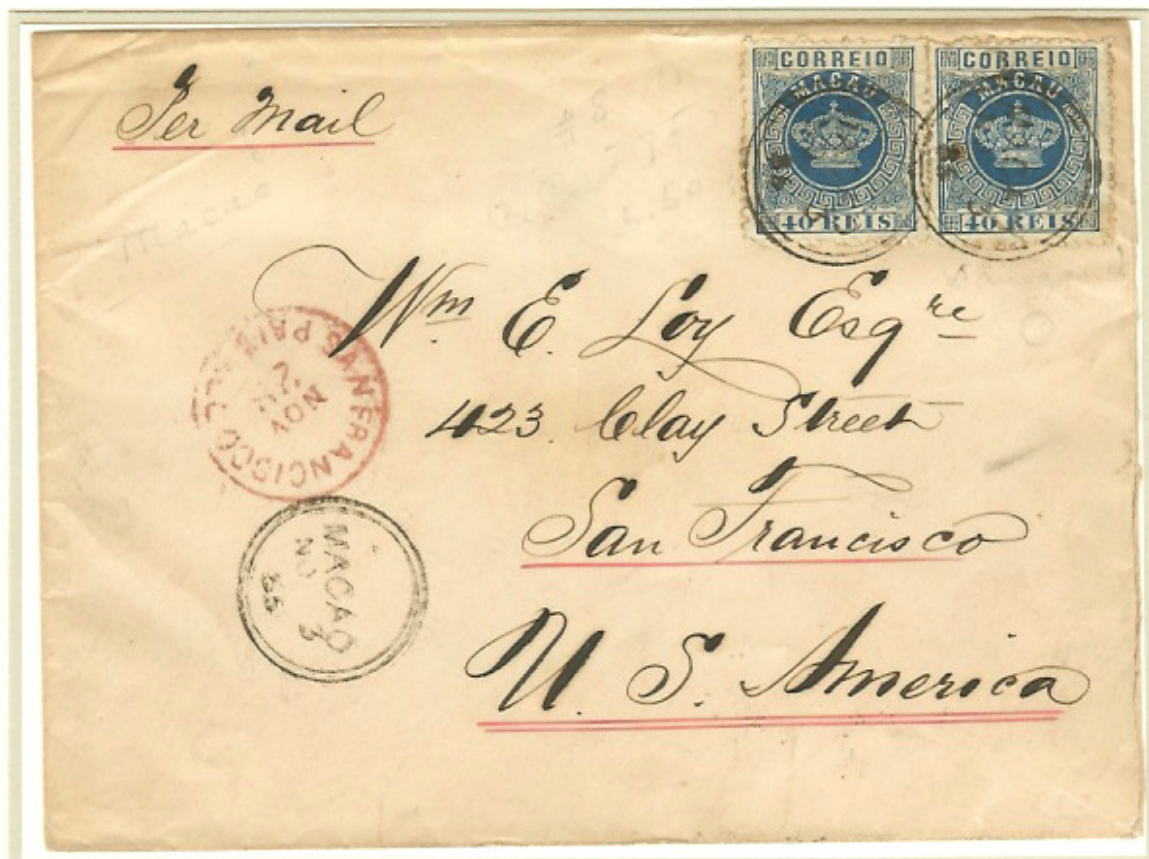 Per Mail
CORREIO
MACAU
40 REIS
CORREIO
MACAU
40 REIS
Wm E. Loy Esqre
423. Clay Street
San Francisco
U. S. America
SAN FRANCISCO
PAID ALL
NOV
MACAO
NO 3
85
Macao